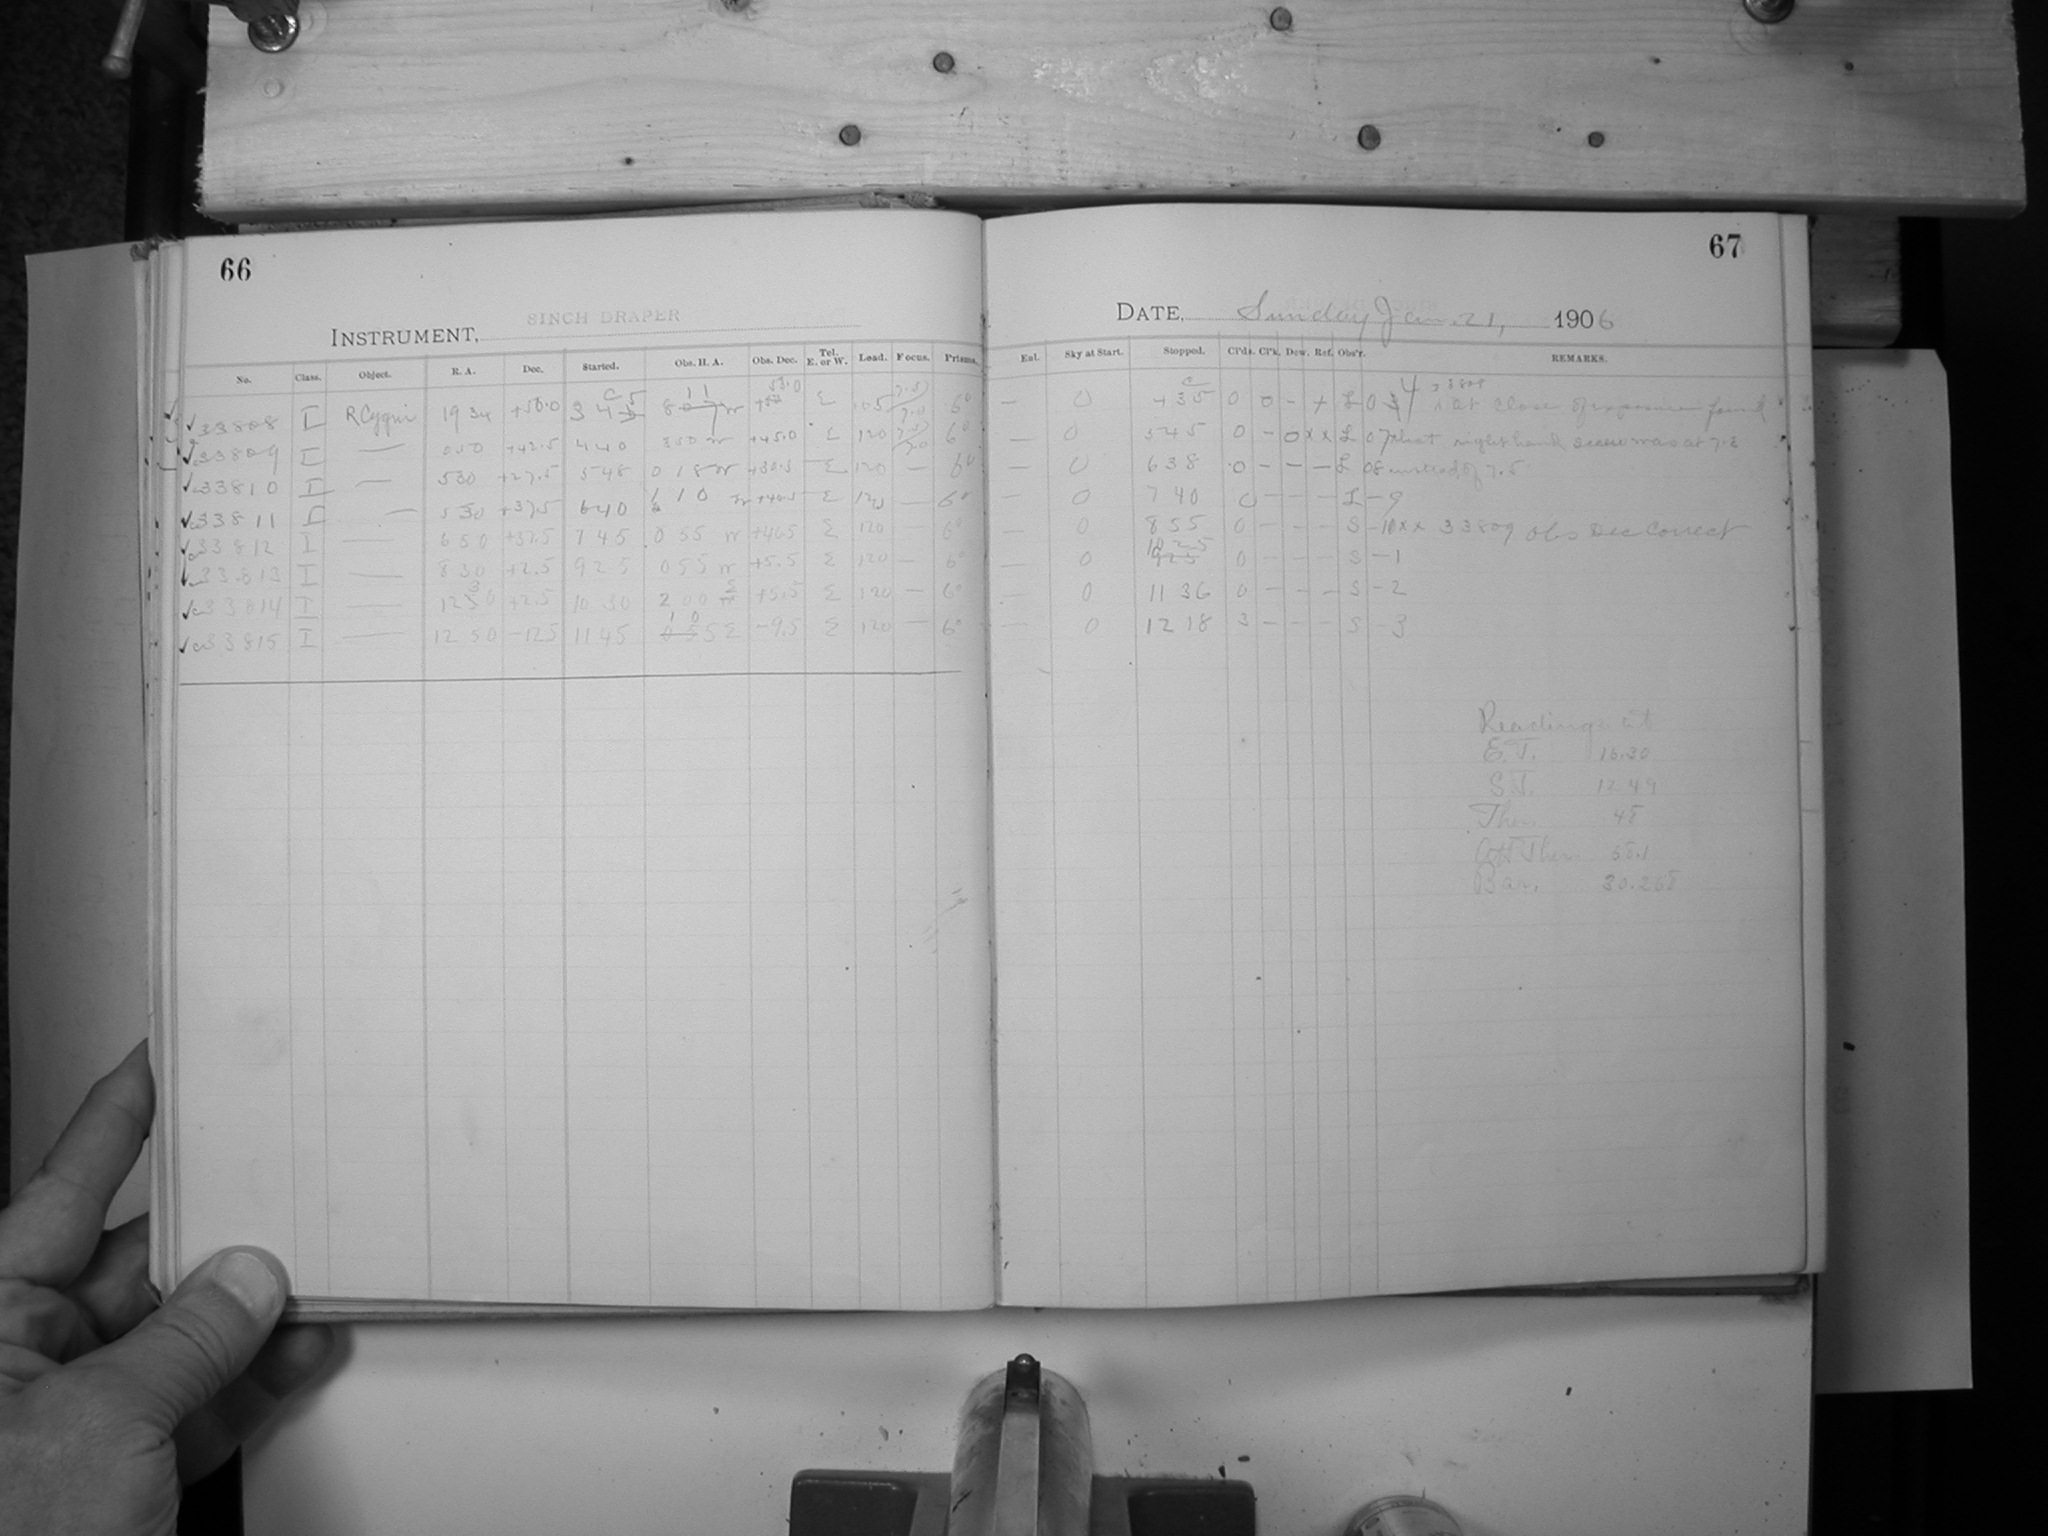 66
INSTRUMENT, 8INCH DRAPER
No. Class. Object. R. A. Dec. Started. Obs. H. A. Obs. Dec. Tel. E. or W. Load. Focus. Prisms.
33808 I R Cygni 19 34 +50.0 3 45 8 W E 105 6°
33809 I — 0 50 +42.5 4 40 3 50 W +45.0 E 120 6°
33810 I — 5 30 +27.5 5 48 0 18 W +30.5 E 120 — 6°
33811 I — 5 30 +37.5 6 40 1 10 W +40.5 E 120 — 6°
33812 I — 6 50 +37.5 7 45 0 55 W +40.5 E 120 6°
33813 I — 8 30 +2.5 9 25 0 55 W +5.5 E 120 — 6°
33814 I — 12 30 +2.5 10 30 2 00 E +5.5 E 120 — 6°
33815 I — 12 50 -12.5 11 45 1 05 E -9.5 E 120 — 6°
67
DATE, Sunday Jan. 21, 1906
Enl. Sky at Start. Stopped. Cl'ds. Cl'k. Dew. Ref. Obs'r. REMARKS.
— 0 4 35 0 0 - + L 04 33808 x at close of exposure found
— 0 5 45 0 - 0 x x L 07 that right hand screw was at 7.3
— 0 6 38 0 - - - L 08 instead of 7.5
— 0 7 40 0 - - - L - 9
— 0 8 55 0 - - - S - 10 xx 33809 Obs Dec Correct
— 0 10 25 0 - - - S - 1
— 0 11 36 0 - - - S - 2
— 0 12 18 3 - - - S - 3
Readings at
E.T. 16.30
S.T. 12 49
Ther. 48
Att Ther.
Bar. 30.268